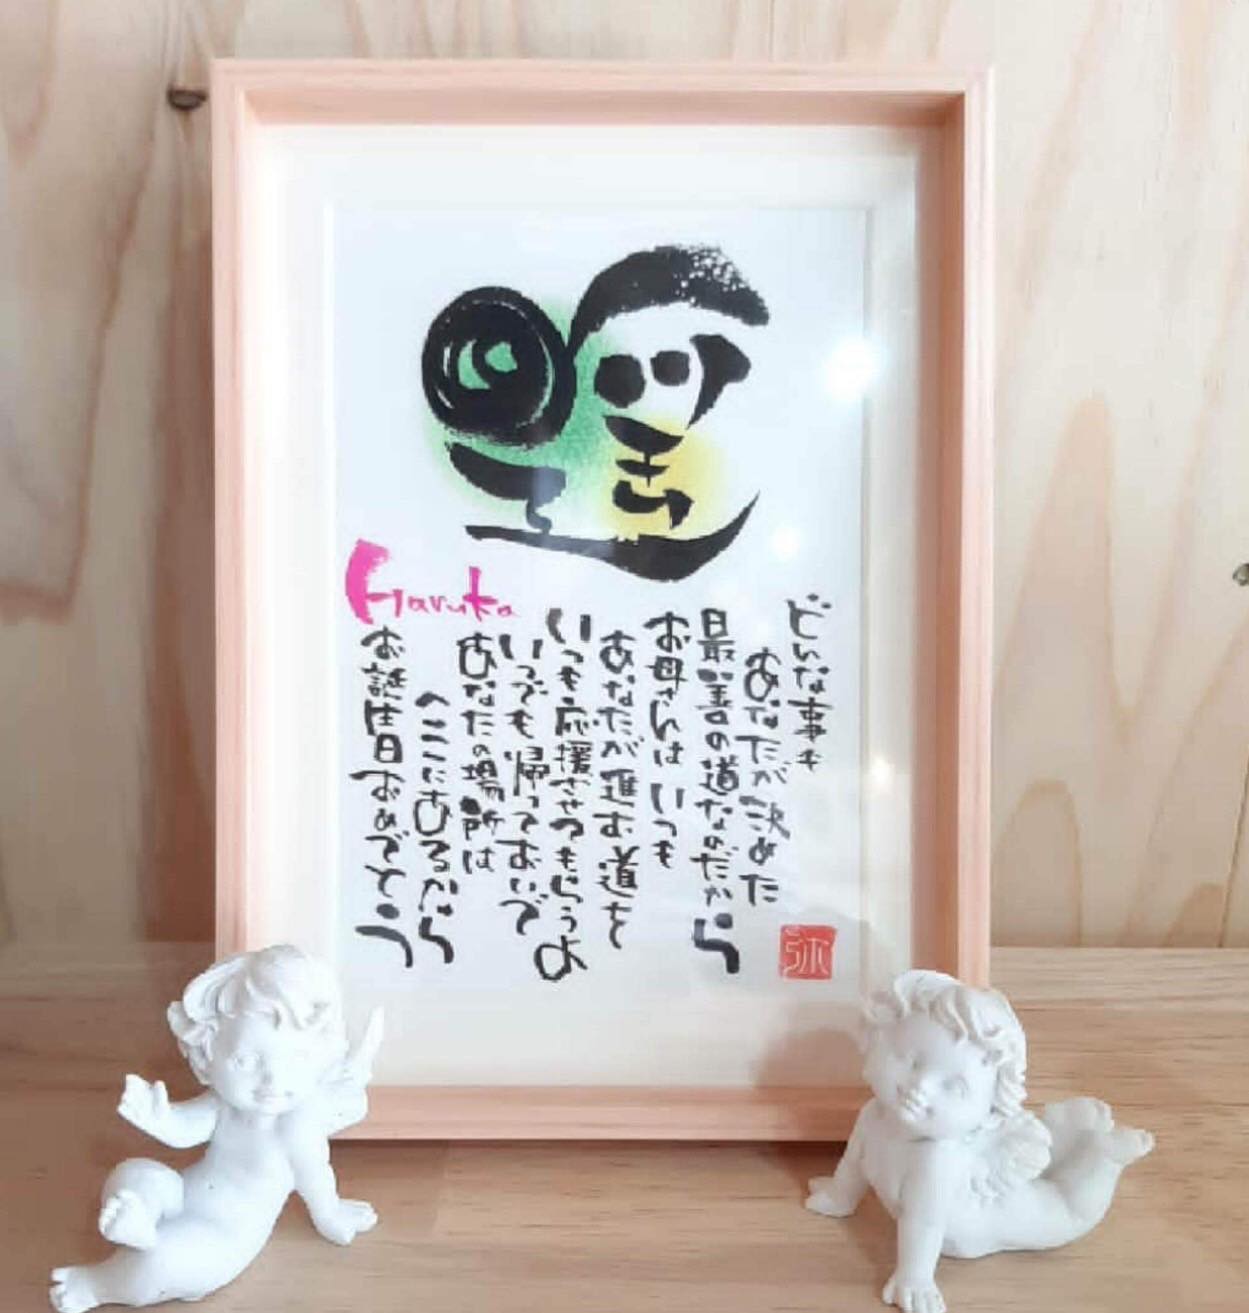 遥
Haruka
どんな事も
あなたが決めた
最善の道なのだから
お母さんは いつも
あなたが進む道を
いつも応援させてもらうよ
いつでも帰っておいで
あなたの場所は
ここにあるから
お誕生日おめでとう